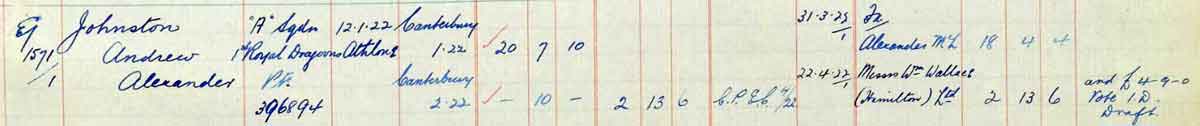 31-3-25 Fr
E/ Johnston "A" Sqdn 12.1.22 Canterbury
1571 Andrew 1st Royal Dragoons Athlone 1.22 20 7 10 1 Alexander McL 18 4 4
/1 Alexander Pte. Canterbury 22.4.22 Messrs Wm Wallace and £4-9-0
396894 2.22 - 10 - 2 13 6 4/22 1 (Hamilton) Ltd 2 13 6 Vote 1.D.
Draft